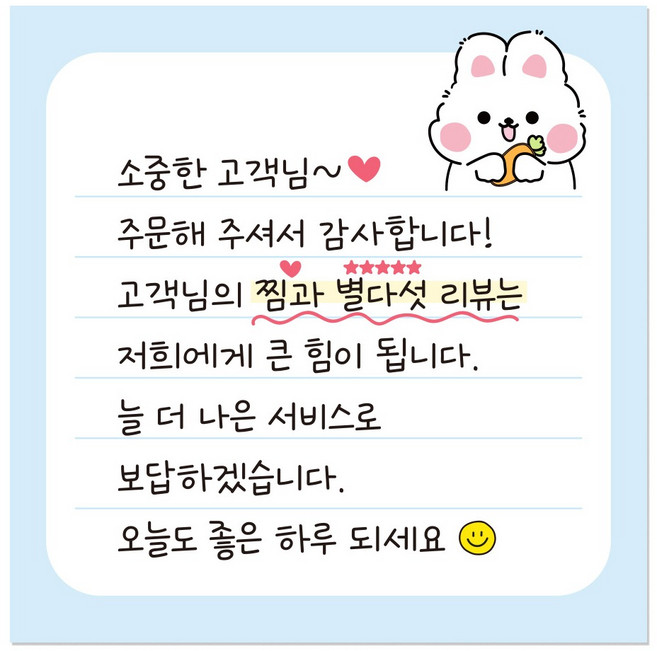 소중한 고객님~
주문해 주셔서 감사합니다!
고객님의 찜과 별다섯 리뷰는
저희에게 큰 힘이 됩니다.
늘 더 나은 서비스로
보답하겠습니다.
오늘도 좋은 하루 되세요